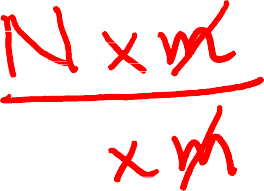 N × m
× m